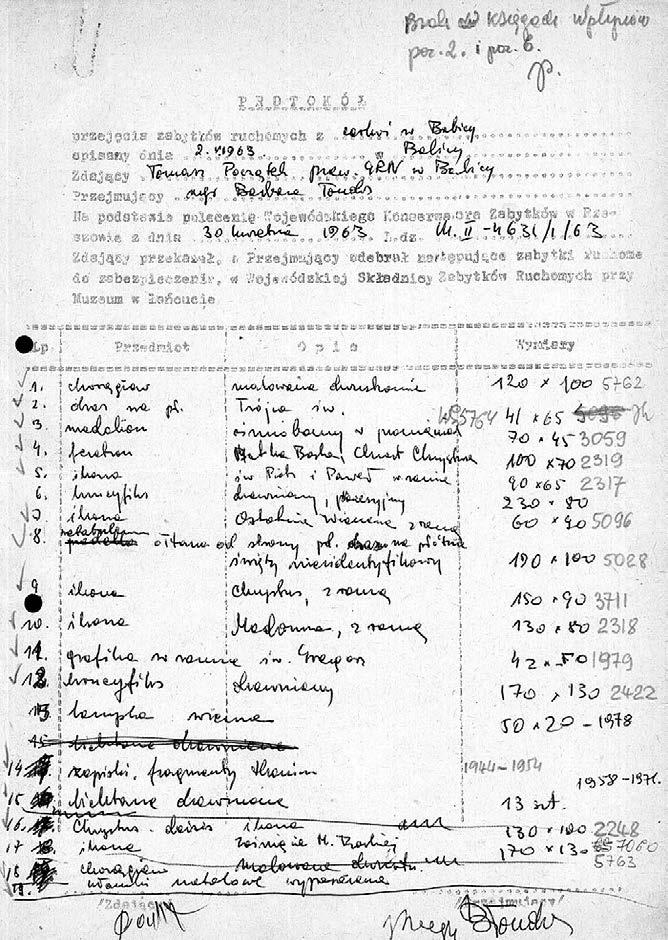 Brak w księgach wpływów
poz. 2. i poz. 6.
PROTOKÓŁ
przejęcia zabytków ruchomych z cerkwi w Babicy
spisany dnia 2.V.1963 w Babicy
Zdający Tomasz Początek prac. GRN w Babicy
Przejmujący mgr Barbara Tondos
Na podstawie polecenia Wojewódzkiego Konserwatora Zabytków w Rze-
szowie z dnia 30 kwietnia 1963 L.dz. Kl. II-4631/1/63
Zdający przekazał, a Przejmujący odebrał następujące zabytki ruchome
do zabezpieczenir, w Wojewódzkiej Składnicy Zabytków Ruchomych przy
Muzeum w Łańcucie
Lp. Przedmiot Opis Wymiary
1. chorągiew malowana dwustronnie 120 x 100 5762
2. obraz na pł. Trójca św. 5764 41 x 65
3. medalion 70 x 45 3059
4. feretron Matka Boska, Chrzest Chrystusa 100 x 70 2319
5. ikona św. Piotr i Paweł w ramie 90 x 65 2317
6. krucyfiks drewniany, procesyjny 230 x 80
7. ikona Ostatnia Wieczerza z ramą 60 x 90 5096
8. ołtarza od strony płd. na płótnie
święty niezidentyfikowany 190 x 100 5028
9 ikona Chrystus, z ramą 150 x 90 3711
10. ikona Madonna, z ramą 130 x 80 2318
11. grafika w ramie św. Grzegorz 42 x 50 1979
12. krucyfiks drewniany 170 x 130 2422
13. lampka wieczna 50 x 20 - 1978
14 zapiski, fragmenty 1944-1954
1958-1971.
15 lichtarze drewniane 13 szt.
16. Chrystus ikona 130 x 100 2248
17 ikona zaśnięcie M. Boskiej 170 x 130 7060
18 chorągiew malowana dwustr. 5763
19. ułamki metalowe wyposażenia
/Zdający/ /Przejmujący/
mgr BTondos